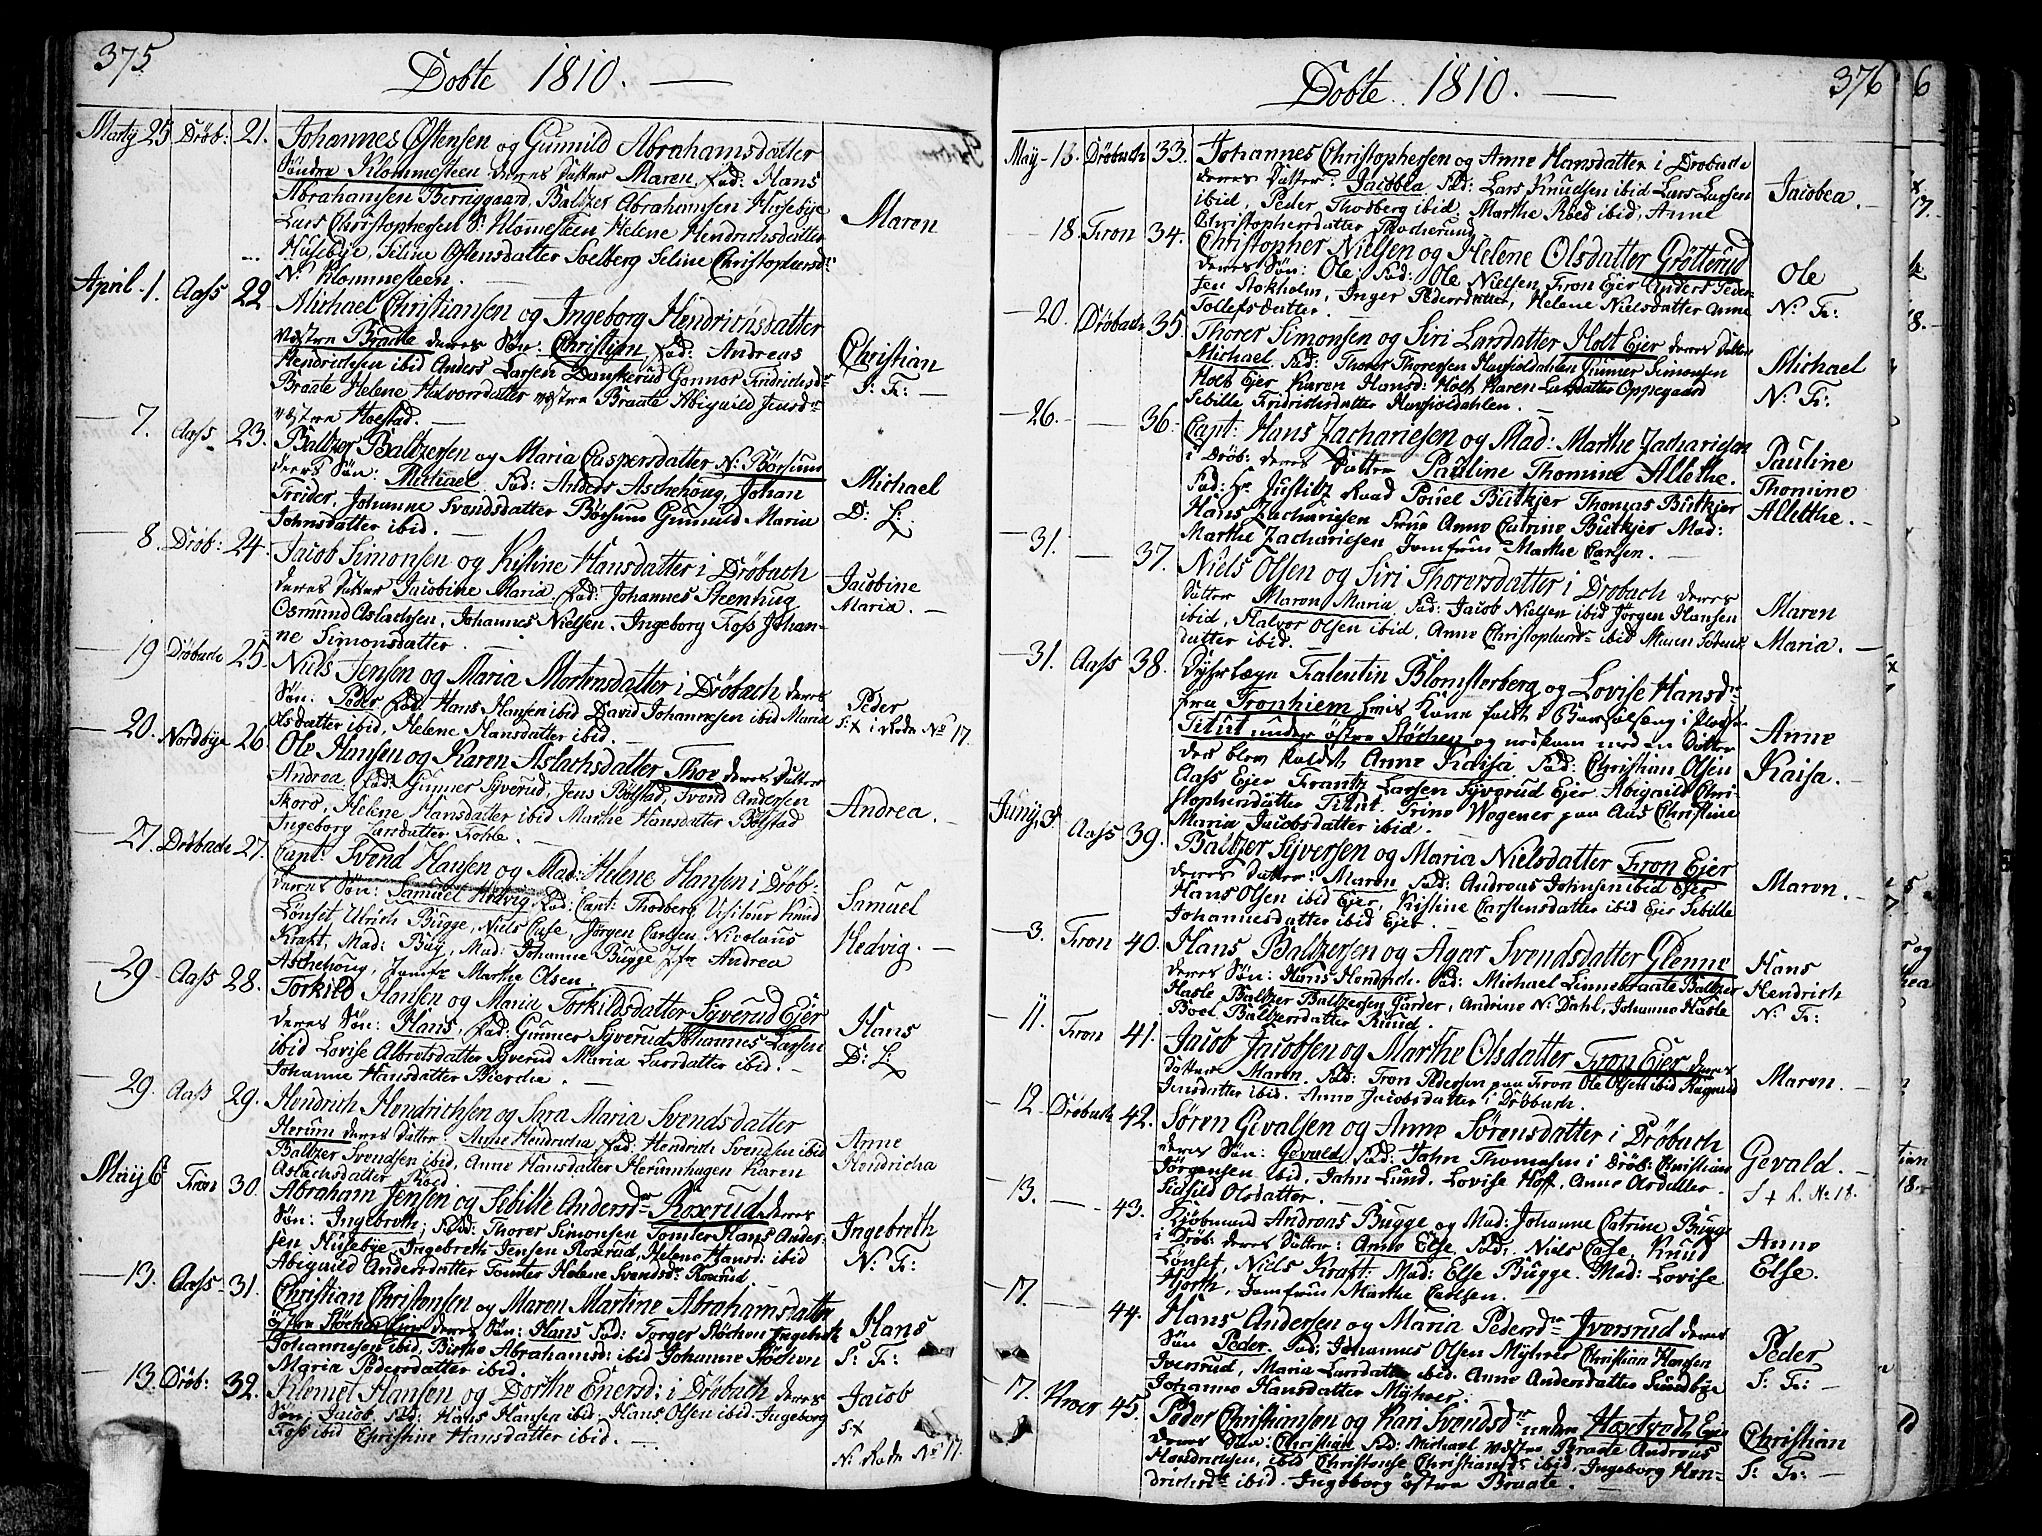 375
Döbte 1810.
Marty 25 Dröb: 21. Johannes Østensen og Gunnild Abrahamsdatter
Söndre Klommesteen deres Datter Maren, Fad: Hans
Abrahamsen Berriggaard, Baltzer Abrahamsen Husebye
Maren
Lars Christophersen S: Klomesteen Helene Hendrichsdatter
Husebye, Seline Østensdatter Solberg Seline Christophersdr
N: Klommesteen.
April 1. Aass 22 Michael Christiansen og Ingeborg Hendrichsdatter
væstre Braate deres Sön: Christian, Fad: Andreas
Christian
Hendrichsen ibid Anders Larsen Danskerud Gonnor Fridrichsdr
S: F:
Braate Helene Halvorsdatter væstre Braate Abiguild Jensdr
væstre Hoestad.
7. Aass 23. Baltzer Baltzersen og Maria Caspersdatter N: Börsum
deres Sön: Michael Fad: Anders Aschehoug, Johan
Michael
Treider, Johanne Svendsdatter Börsum Gunnild Maria
D: L:
Johnsdatter ibid.
8. Dröb: 24. Jacob Simonsen og Kistine Hansdatter i Dröbach
deres Datter Jacobine Maria, Fad: Johannes Steenhug
Jacobine
Maria.
Osmund Aslachsen, Johannes Nielsen. Ingeborg Foss Johan-
ne Simonsdatter.
19 Dröbach 25. Niels Jensen og Maria Mortensdatter i Dröbach deres
Sön: Peder Fad: Hans Hansen ibid David Johannesen ibid Maria
Peder
Olsdatter ibid, Helene Hansdatter ibid.
S:x i Rade No 17.
20. Nordbye 26. Ole Hansen og Karen Aslachsdatter Thoe deres Datter
Andrea, Fad: Gunner Syverud, Jens Bölstad, Svend Andersen
Andrea.
Skoro, Helene Hansdatter ibid Marthe Hansdatter Bölstad
Ingeborg Larsdatter Fohle.
27. Dröbach 27. Capt: Svend Hansen og Mad: Helene Hansen i Dröb:
deres Sön: Samuel Hedvig, Fad: Capt: Thodberg, Visiteur Knud
Samuel
Hedvig.
Lönset, Ulrich Bugge, Niels Case, Jörgen Carlsen, Nicolaus
Kraft, Mad: Buy, Mad: Johanne Bugge Jfr Andrea
Aschehoug, Jomfr Marthe Olsen.
29. Aass 28. Torkild Hansen og Maria Torkildsdatter Syverud Ejer
deres Sön: Hans, Fad: Gunner Syverud Johannes Larsen
Hans
D: L:
ibid Lovise Albretsdatter Syverud Maria Larsdatter ibid.
Johanne Hansdatter Bierche.
29. Aass 29. Hendrich Hendrichsen og Sara Maria Svendsdatter
Herum deres Datter. Anne Hendricha Fad: Hendrich Svendsen ibid
Anne
Hendricha
Baltzer Svendsen ibid, Anne Hansdatter Herumhagen Karen
Aslachsdatter Roed
May 6 Fron 30. Abraham Jensen og Sebille Andersdr Roxerud deres
Sön: Ingebreth, Fad: Thorer Simonsen Tomter Hans Ander-
Ingebreth
N: F:
sen Husebye Ingebreth Jensen Roxrud, Helene Hansd: ibid
Abiguild Andersdatter Tomter Helene Svendsd: Roxrud.
13. Aass 31. Christian Christensen og Maren Martine Abrahamsdatter
östre Stöchen Ejer deres Sön: Hans Fad: Torger Stöchen Ingebreth
Hans
S: F:
Johannesen ibid, Birthe Abrahamsd: ibid Johanne Stöchen
Maria Pedersdatter ibid.
13. Dröb: 32. Klemet Hansen og Dorthe Enersd: i Dröbach deres
Sön: Jacob, Fad: Hans Hansen ibid: Hans Olsen ibid. Ingeborg
Jacob
S:x
Foss ibid Christine Hansdatter ibid.
N: Rade No 17.
376
Döbte 1810.
May 13. Dröbach 33. Johannes Christophersen og Anne Hansdatter i Dröbach
deres Datter: Jacobea Fad: Lars Knudsen ibid Lars Larsen
Jacobea.
ibid, Peder Thodberg ibid, Marthe Roed ibid, Anne
Christophersdatter Thocherund
18. Fron 34. Christopher Nielsen og Helene Olsdatter Gröttrud
deres Sön: Ole, Fad: Ole Nielsen, Fron Ejer Anders Peder-
Ole
N: F:
sen Stokholm, Inger Pedersdatter, Helene Nielsdatter Anne
Tollefsdatter.
20. Dröbach 35. Thorer Simonsen og Siri Larsdatter Holt Ejer deres Datter
Michael Fad: Thorer Thoresen Gunner Simonsen
Michael
N: F:
Holt Ejer Karen Hansd: Holt Karen Larsdatter Oppegaard
Sebille Fridrichsdatter
26. 36. Capt: Hans Zachariesen og Mad: Marthe Zachariesen
i Dröb: deres Datter Pauline Thomine Allethe.
Pauline
Thomine
Alletthe.
Fad: Hr Justitz Raad Pouel Butkjer Thomas Butkjer
Hans Zachariesen Frue Anne Catrine Butkjer Mad:
Marthe Zachariesen Jomfrue Marthe Carlsen.
31. 37. Niels Olsen og Siri Thorersdatter i Dröbach deres
Datter Maren Maria, Fad: Jacob Nielsen ibid Jörgen Hansen
Maren
Maria.
ibid, Halvor Olsen ibid, Anne Christophersd: ibid Maren Sörens
datter ibid.
31. Aass 38. Dyhrlæge Falentin Blomsterberg og Lovise Hansdr
fra Tronhiem hvis Kone faldt i Barselseng i
Titut under östre Stöchen og nedkom med en Datter
Anne
Kaisa.
der blev kaldt Anne Kaisa Fad: Christian Olsen
Aass Ejer Frantz Larsen Syverud Ejer. Abiguild Chri-
stophersdatter Titut. Trine Wegener paa Aas Christine
Maria Jacobsdatter ibid.
Juny 3 Aass 39. Baltzer Syversen og Maria Nielsdatter Fron Ejer
deres Datter: Maren Fad: Andreas Johnsen ibid Ejer
Maren.
Hans Olsen ibid Ejer, Kistine Carstensdatter ibid Ejer Sebille
Johannesdatter ibid Ejer.
3. Fron 40. Hans Baltzersen og Agar Svendsdatter Glenne
deres Sön: Hans Hendrich. Fad: Michael Linnebraate Baltzer
Hans
Hendrich
N: F:
Hasle Baltzer Baltzersen Garder, Andrine N: Dahl, Johanne Hasle
Boel Baltzersdatter Kuud.
11. Fron 41. Jacob Jacobsen og Marthe Olsdatter Fron Ejer deres
Datter Maren. Fad: Fron Pedersen paa Fron Ole Olsen ibid Ragnild
Maren.
Jensdatter ibid. Anne Jacobsdatter i Dröbach.
12. Dröbach 42. Sören Gevalsen og Anne Sörensdatter i Dröbach
deres Sön: Gevald, Fad: John Thomesen i Dröb: Christian
Gevald.
S + R. No 18.
Jörgensen ibid, Jahn Lund, Lovise Hoff, Anne Olsdatter
Sidsild Olsdatter.
13. 43. Kjöbmand Andreas Bugge og Mad: Johanne Catrine Bugge
i Dröb: deres Datter: Anne Else, Fad: Niels Case, Knud
Anne
Else.
Lönset, Niels Kraft: Mad: Else Bugge. Mad: Lovise
Hjorth, Jomfrue Marthe Carlsen.
17. 44. Hans Andersen og Maria Pedersdr Jversrud deres
Sön Peder. Fad: Johannes Olsen Myhrer Christian Hansen
Peder
S: F:
Jversrud, Maria Larsdatter ibid: Anne Andersdatter Sundbye
Johanne Hansdatter Myhrer.
17. Kroer 45. Peder Christiansen og Kari Svendsdr under Ejer
deres Sön: Christian Fad: Michael væstre Braate Andreas
Christian
S: F:
Hendrichsen, ibid Christense Christiansdr ibid, Ingeborg Hen-
drichsdr ibid. Ingeborg östre Braate.